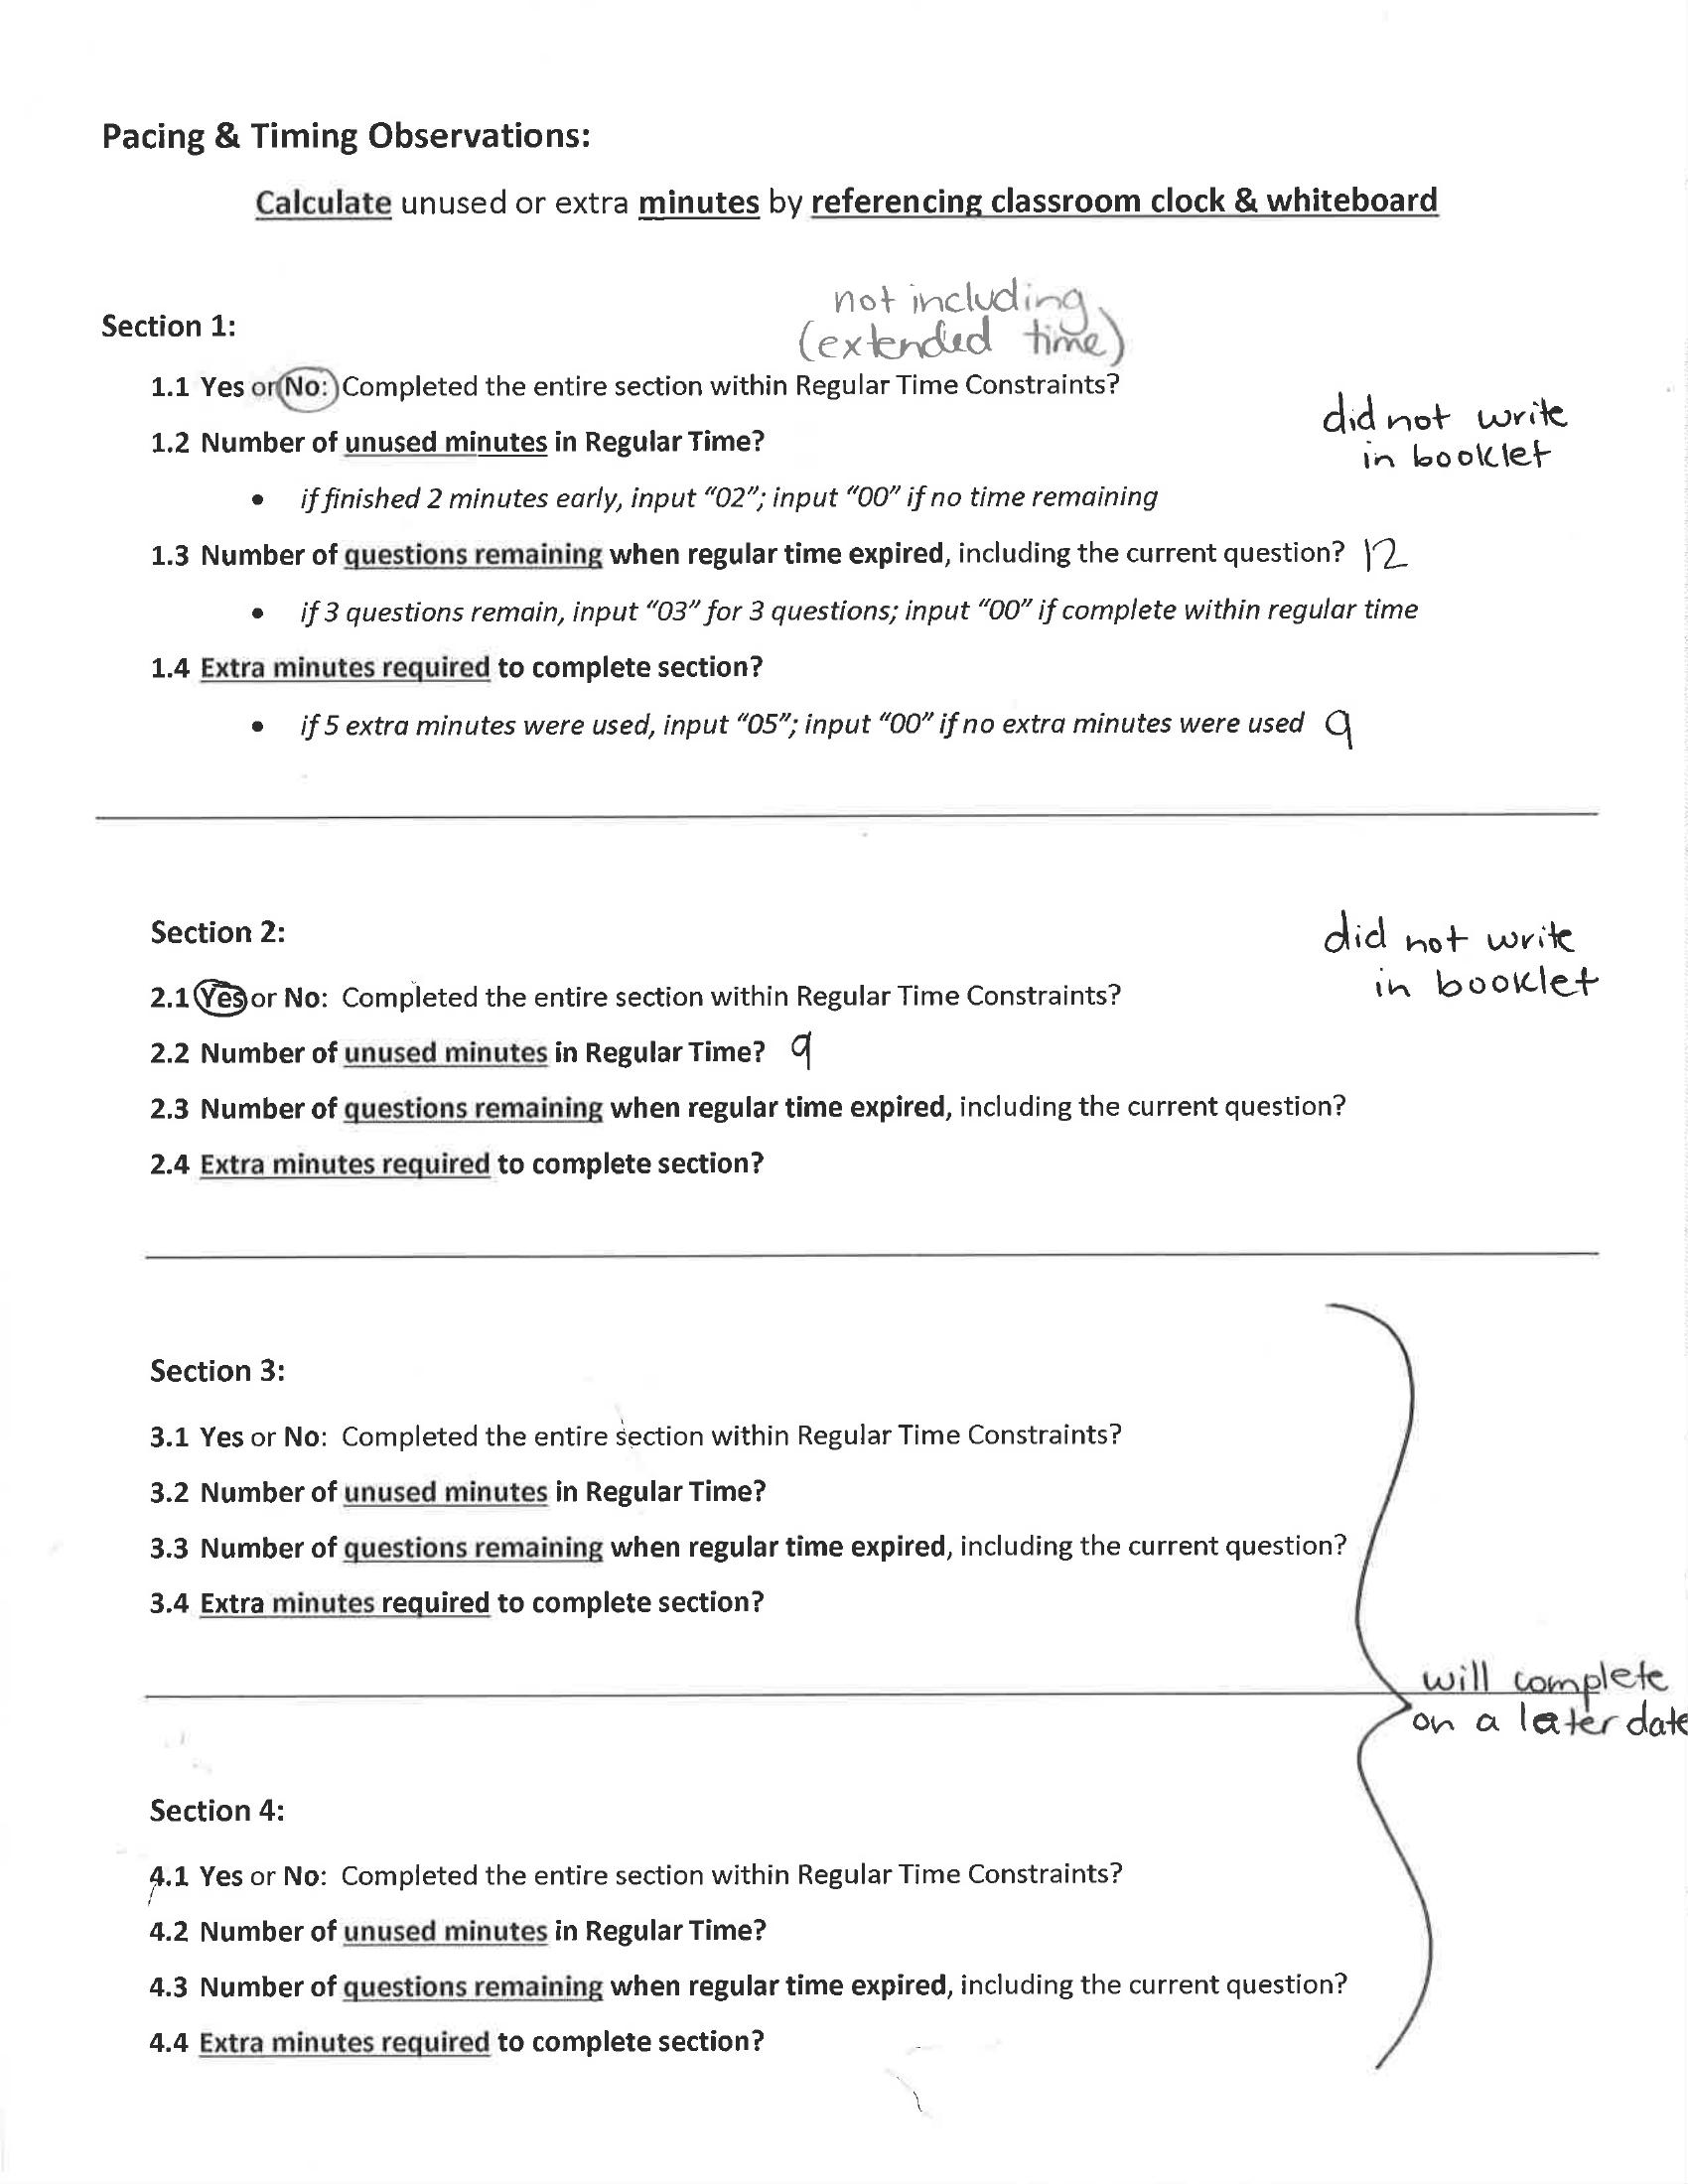 Pacing & Timing Observations:
Calculate unused or extra minutes by referencing classroom clock & whiteboard
not including
Section 1:
(extended time)
1.1 Yes or No: Completed the entire section within Regular Time Constraints?
did not write
in booklet
1.2 Number of unused minutes in Regular Time?
• if finished 2 minutes early, input “02”; input “00” if no time remaining
1.3 Number of questions remaining when regular time expired, including the current question? 12
• if 3 questions remain, input “03” for 3 questions; input “00” if complete within regular time
1.4 Extra minutes required to complete section?
• if 5 extra minutes were used, input “05”; input “00” if no extra minutes were used 9
Section 2:
did not write
in booklet
2.1 Yes or No: Completed the entire section within Regular Time Constraints?
2.2 Number of unused minutes in Regular Time? 9
2.3 Number of questions remaining when regular time expired, including the current question?
2.4 Extra minutes required to complete section?
Section 3:
3.1 Yes or No: Completed the entire section within Regular Time Constraints?
3.2 Number of unused minutes in Regular Time?
3.3 Number of questions remaining when regular time expired, including the current question?
3.4 Extra minutes required to complete section?
will complete
on a later date
Section 4:
4.1 Yes or No: Completed the entire section within Regular Time Constraints?
4.2 Number of unused minutes in Regular Time?
4.3 Number of questions remaining when regular time expired, including the current question?
4.4 Extra minutes required to complete section?